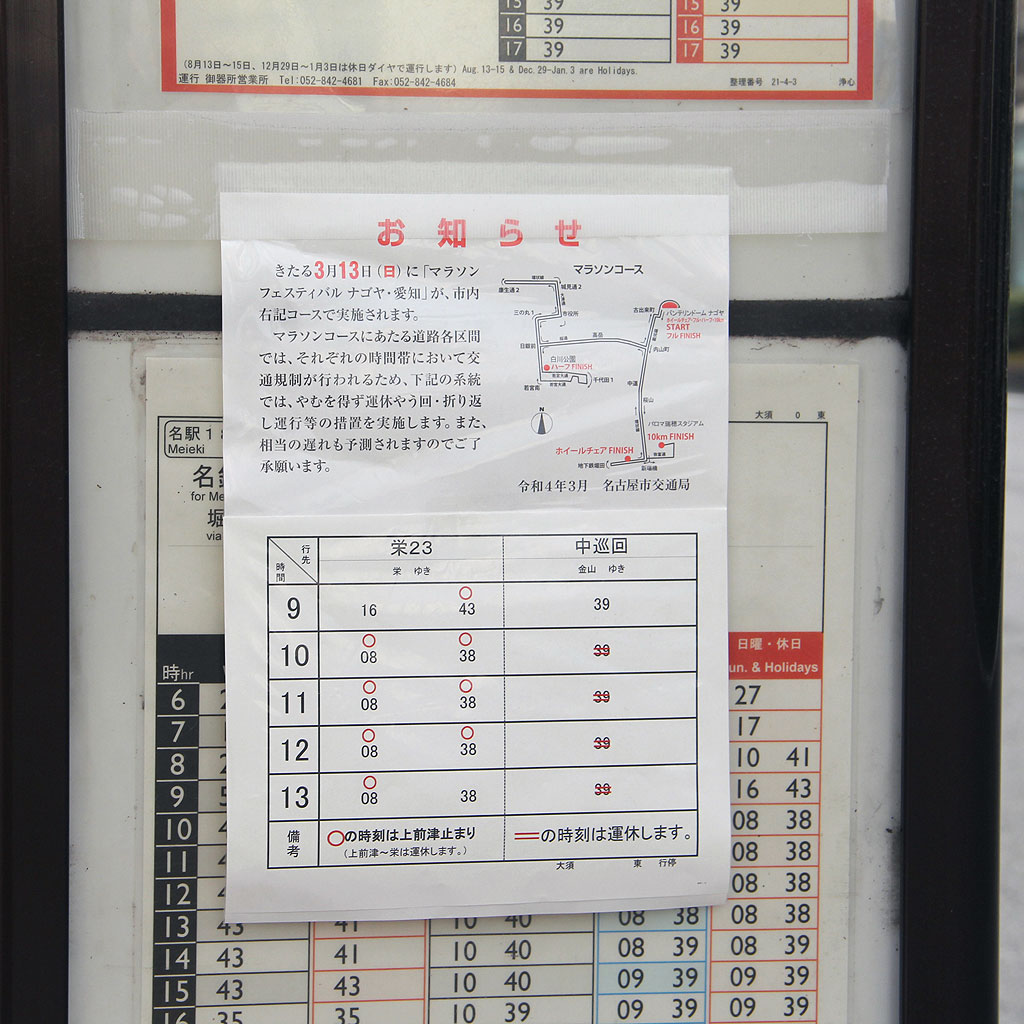 15 39 15 39
16 39 16 39
17 39 17 39
(8月13日～15日、12月29日～1月3日は休日ダイヤで運行します) Aug.13-15 & Dec.29-Jan.3 are Holidays.
運行 御器所営業所 Tel:052-842-4681 Fax:052-842-4684
整理番号 21-4-3 浄心
お知らせ
きたる3月13日(日)に「マラソン
フェスティバル ナゴヤ・愛知」が、市内
右記コースで実施されます。
マラソンコースにあたる道路各区間
では、それぞれの時間帯において交
通規制が行われるため、下記の系統
では、やむを得ず運休やう回・折り返
し運行等の措置を実施します。また、
相当の遅れも予測されますのでご了
承願います。
マラソンコース
康生通2
城見通2
三の丸1
市役所
古出来町
バンテリンドーム ナゴヤ
START
フル FINISH
日銀前
内山町
白川公園
ハーフ FINISH
若宮南
千代田1
中道
桜山
N
パロマ瑞穂スタジアム
10km FINISH
ホイールチェア FINISH
地下鉄堀田
新瑞橋
令和4年3月 名古屋市交通局
行先
時間
栄23
栄 ゆき
中巡回
金山 ゆき
9 16 43 39
10 08 38 39
11 08 38 39
12 08 38 39
13 08 38 39
備考
○の時刻は上前津止まり
(上前津～栄は運休します。)
＝の時刻は運休します。
大須 東 行停
大須 0 東
名駅1
Meieki
名
for Me
堀
via
時hr
日曜・休日
un. & Holidays
6 27
7 17
8 10 41
9 16 43
10 08 38
11 08 38
12 08 38
13 43 41 10 40 08 38 08 38
14 43 41 10 40 08 39 08 39
15 43 43 10 40 09 39 09 39
16 35 35 10 39 09 39 09 39